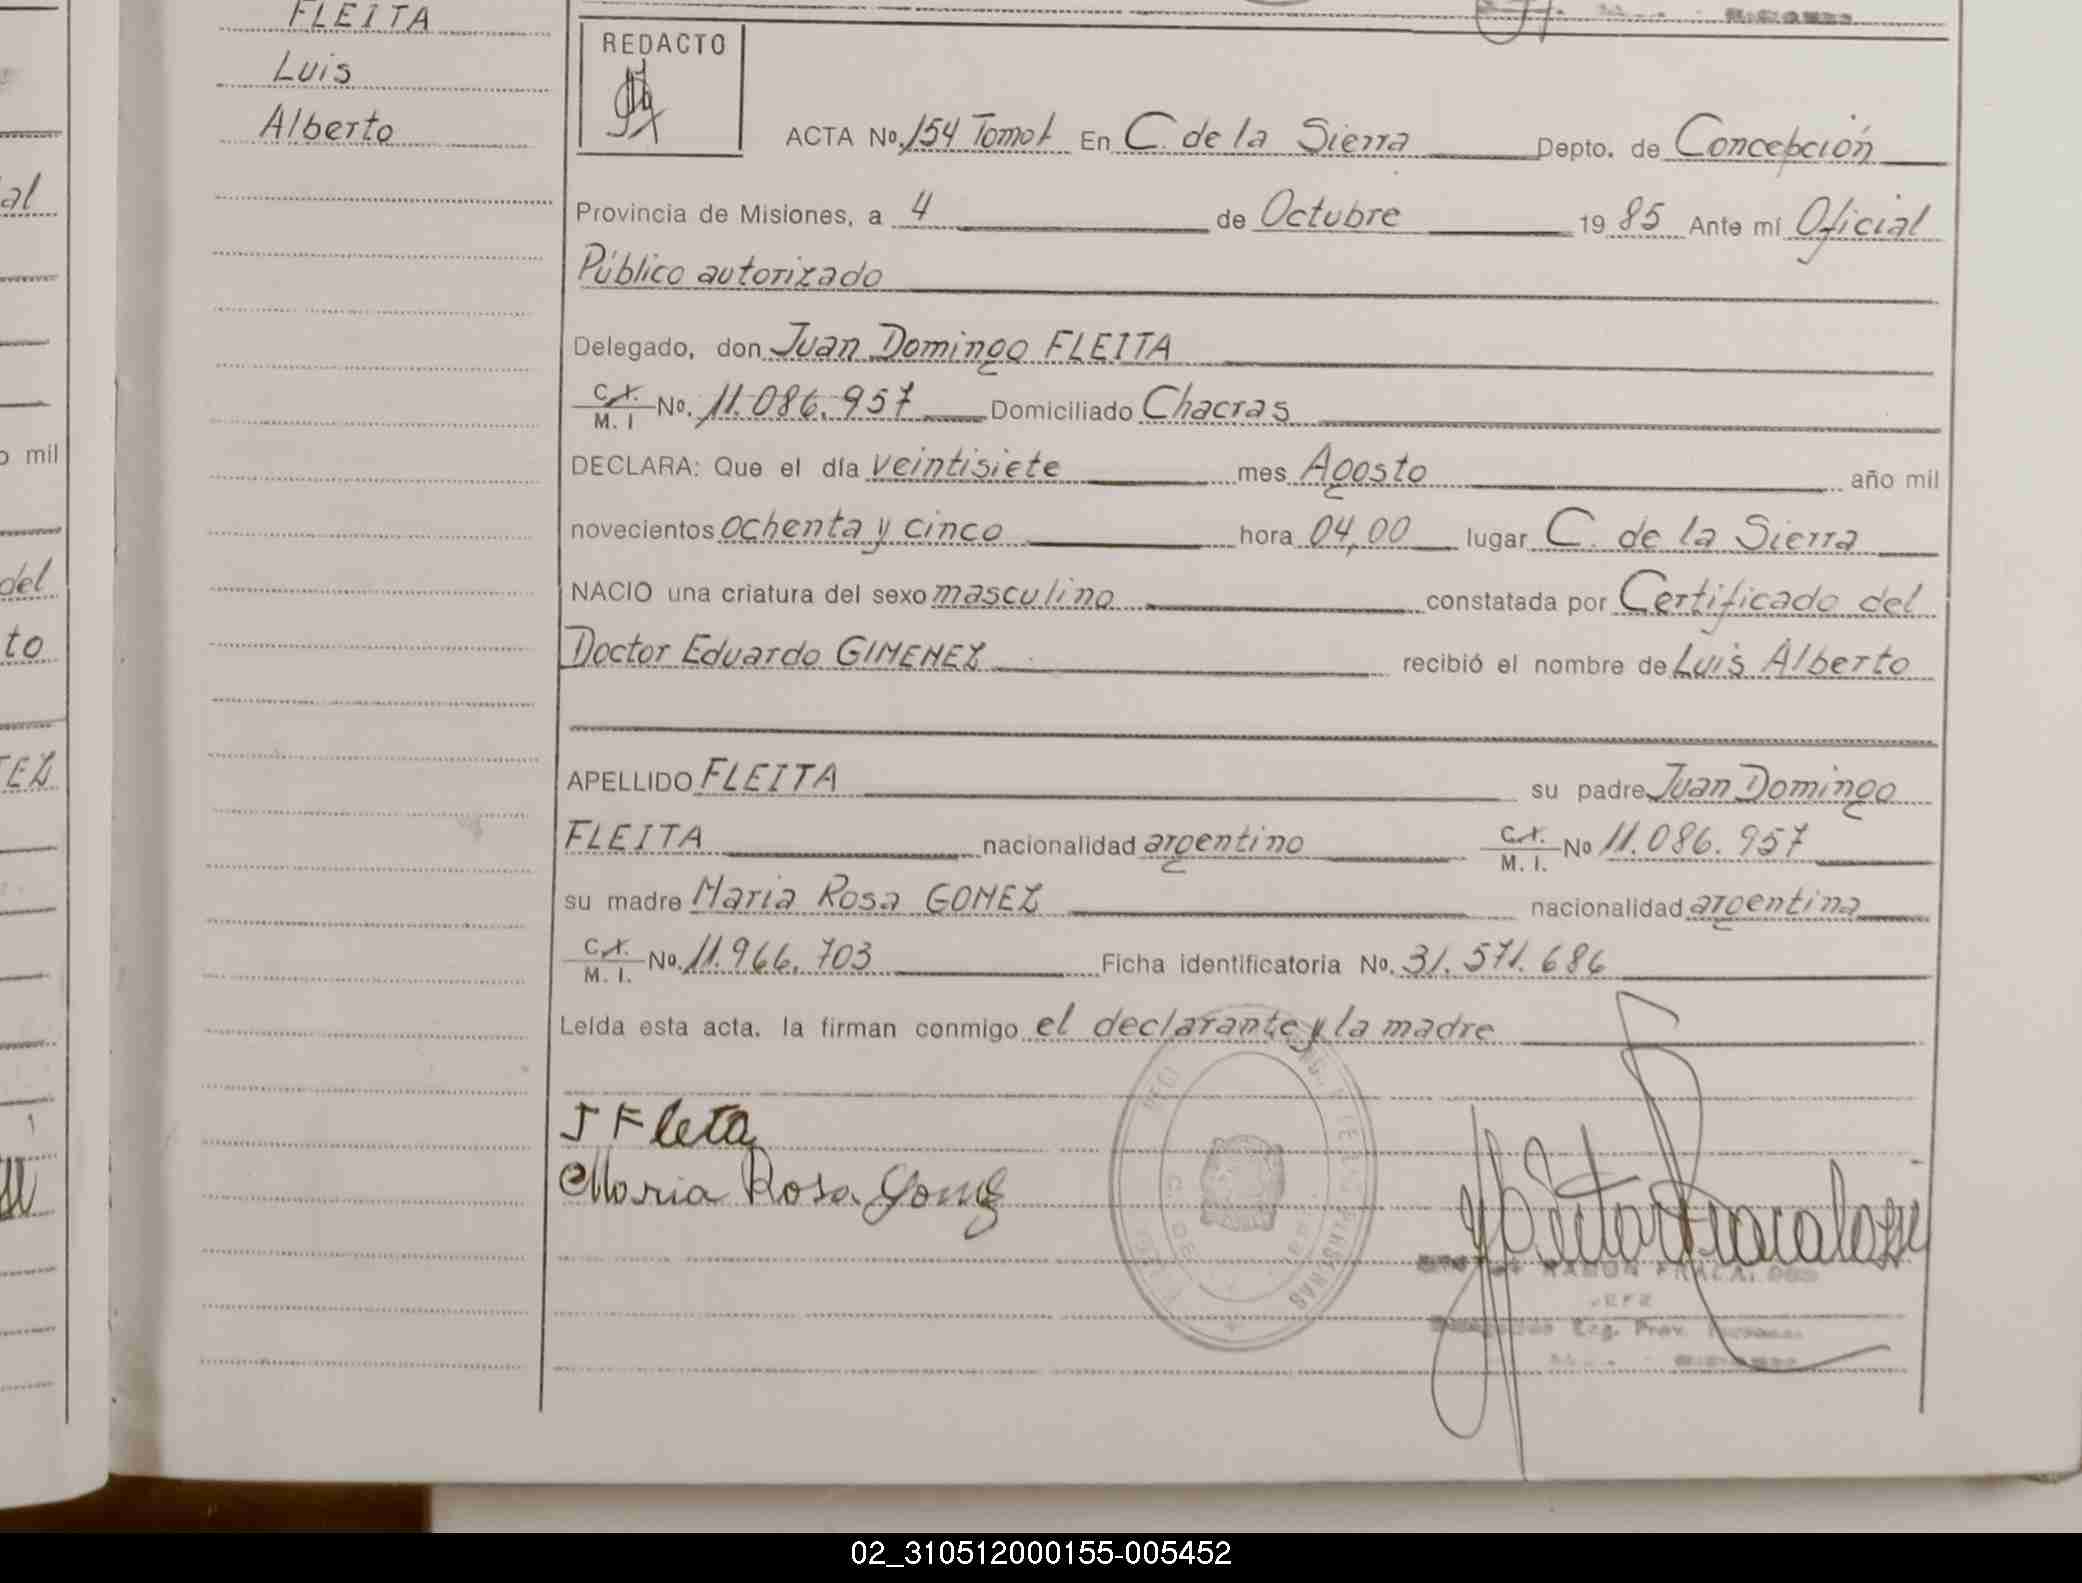 FLEITA
Luis
Alberto
REDACTO
ACTA No. 154 Tomo I En C. de la Sierra Depto. de Concepción
Provincia de Misiones, a 4 de Octubre 1985 Ante mí Oficial
Público autorizado
Delegado, don Juan Domingo FLEITA
C.I. M. I No. 11.086.957 Domiciliado Chacras
DECLARA: Que el día veintisiete mes Agosto año mil
novecientos ochenta y cinco hora 04,00 lugar C. de la Sierra
NACIO una criatura del sexo masculino constatada por Certificado del
Doctor Eduardo GIMENEZ recibió el nombre de Luis Alberto
APELLIDO FLEITA su padre Juan Domingo
FLEITA nacionalidad argentino C.I. M. I. No 11.086.957
su madre Maria Rosa GOMEZ nacionalidad argentina
C.I. M. I. No. 11.966.703 Ficha identificatoria No. 31.571.686
Leída esta acta. la firman conmigo el declarante y la madre
J Fleta
Maria Rosa Gomez
RAMON
Reg. Prov.
al
o mil
del
to
EZ
02_310512000155-005452